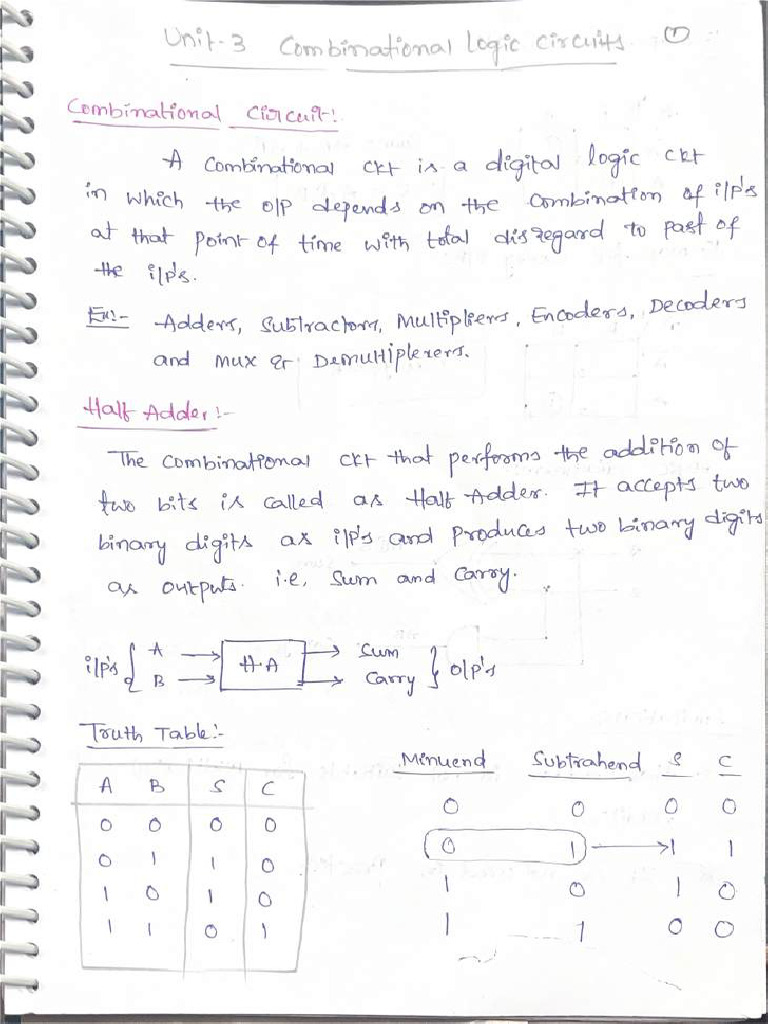 Unit-3 Combinational logic circuits 1
Combinational Circuit:-
A Combinational ckt is a digital logic ckt
in which the o/p depends on the combination of i/p's
at that point of time with total disregard to past of
the i/p's.
Ex:- Adders, Subtractors, Multipliers, Encoders, Decoders
and mux & Demultiplexers.
Half Adder:-
The combinational ckt that performs the addition of
two bits is called as Half Adder. It accepts two
binary digits as i/p's and produces two binary digits
as outputs. i.e, Sum and Carry.
i/p's { A B H.A Sum Carry } o/p's
Truth Table:-
A B S C
0 0 0 0
0 1 1 0
1 0 1 0
1 1 0 1
Minuend Subtrahend S C
0 0 0 0
0 1 → 1 1
1 0 1 0
1 1 0 0